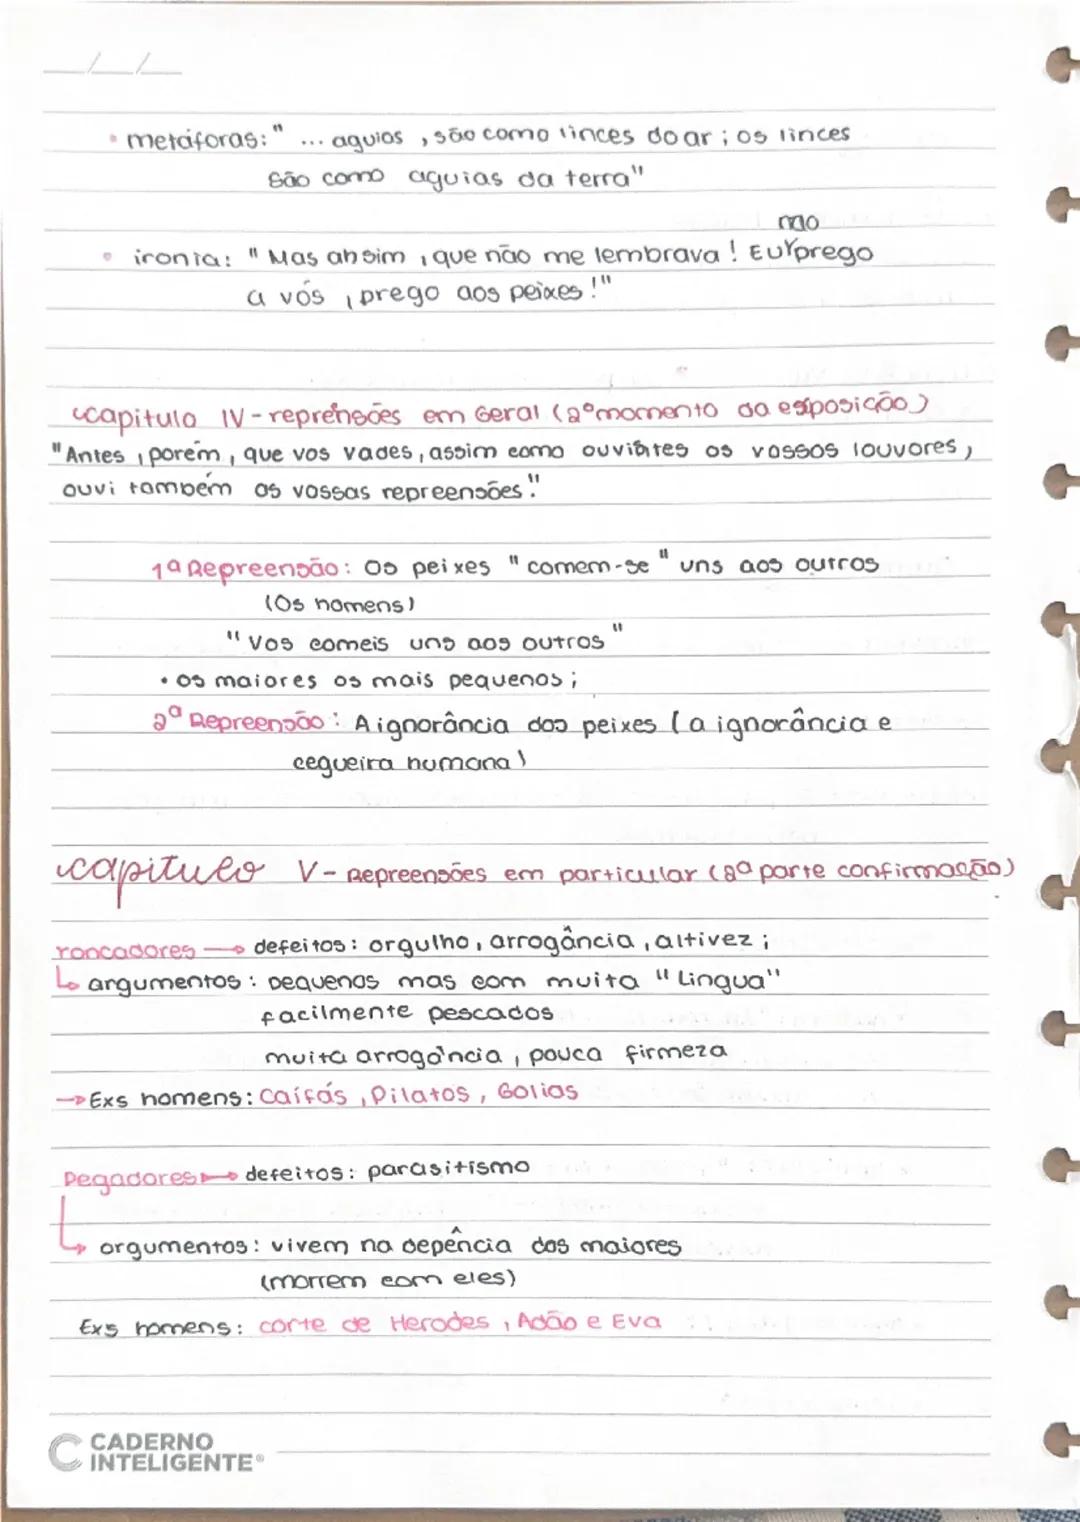 __/__/__
• metáforas: " ... aguias , são como linces do ar ; os linces
são como aguias da terra"
não
• ironia: " Mas ah sim , que não me lembrava ! Eu prego
a vós , prego aos peixes !"
capitulo IV - reprensões em Geral (2º momento da esposição)
"Antes , porém , que vos vades , assim como ouvistes os vossos louvores ,
ouvi também os vossas repreensões ."
1ª Repreensão: Os peixes " comem-se " uns aos outros
(Os homens)
" Vos comeis uns aos outros "
• os maiores os mais pequenos ;
2ª Repreensão : A ignorância dos peixes ( a ignorância e
cegueira humana )
capitulo V - Repreensões em particular (2ª parte confirmação)
roncadores → defeitos : orgulho , arrogância , altivez ;
↳ argumentos : pequenos mas com muita " Lingua"
facilmente pescados
muita arrogância , pouca firmeza
→ Exs homens : Caifás , Pilatos , Golias
Pegadores → defeitos : parasitismo
↳ argumentos : vivem na depência dos maiores
(morrem com eles)
Exs homens : corte de Herodes , Adão e Eva
CADERNO
INTELIGENTE®